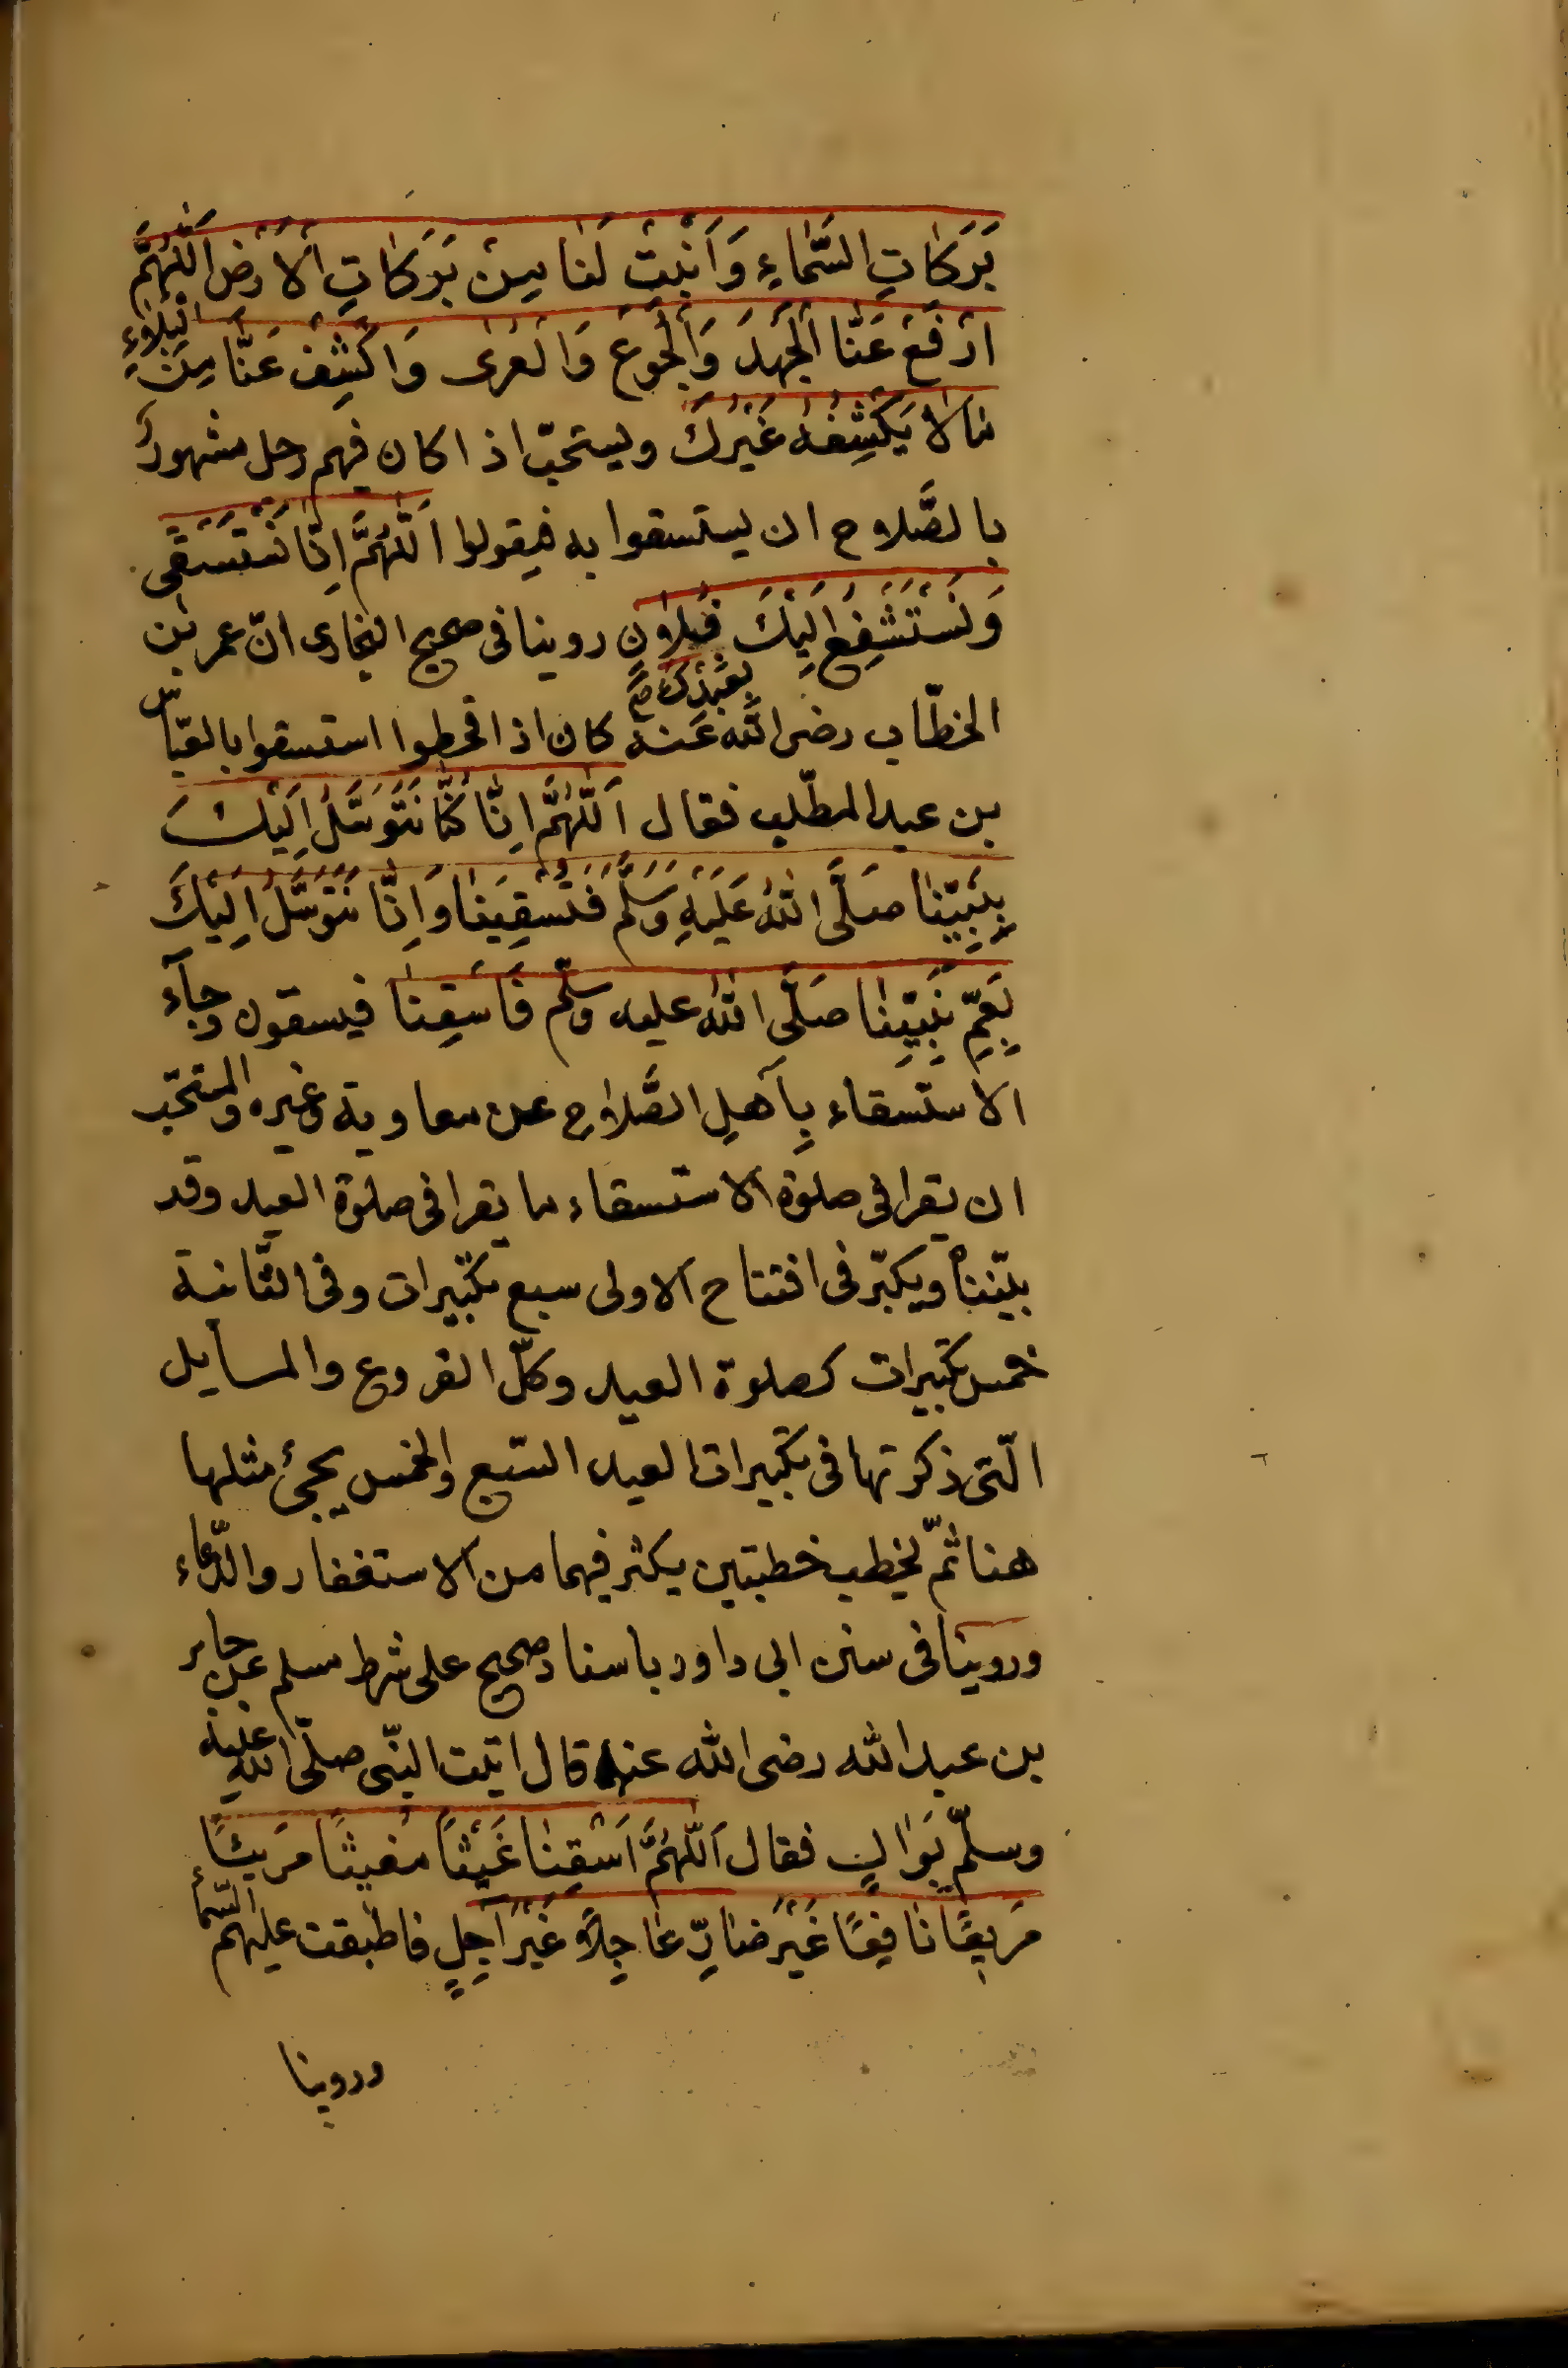 بَرَكَاتِ السَّمَاءِ وَاَنْبِتْ لَنَا مِنْ بَرَكَاتِ الْاَرْضِ اَللّٰهُمَّ
ارْفَعْ عَنَّا الْجَهْدَ وَالْجُوعَ وَالْعُرٰى وَاكْشِفْ عَنَّا مِنَ الْبَلَاءِ
مَالَا يَكْشِفُهُ غَيْرُكَ ويستحبّ اذا كان فيهم رجل مشهورٌ
بالصَّلاح ان يستسقوا به فيقولوا اَللّٰهُمَّ اِنَّا نَسْتَسْقٖى
وَنَسْتَشْفِعُ اِلَيْكَ بِفُلَانٍ روينا فى صحيح البخارى انّ عمر بن
بعَبْدِكَ صح
الخطّاب رضى اللّٰه عَنه كان اذا قحطوا استسقوا بالعبّاس
بن عبد المطّلب فقال اَللّٰهُمَّ اِنَّا كُنَّا نَتَوَسَّلُ اِلَيْكَ
بِنَبِيِّنَا صَلَّى اللّٰهُ عَلَيْهِ وَسَلَّمَ فَتَسْقِيَنَا وَاِنَّا نَتَوَسَّلُ اِلَيْكَ
بِعَمِّ نَبِيِّنَا صَلَّى اللّٰه عليه وسلّم فَاسْقِنَا فيسقون وجآء
الاستسقاء بِاَهلِ الصَّلاحِ عن معاوية وغيره والمستحّب
ان يقرا فى صلوة الاستسقاء ما يقرا فى صلوة العيد وقد
بيّنناه ويكبّر فى افتتاح الاولى سبع تكبيرات وفى الثّانية
خمس تكبيرات كصلوة العيد وكلّ الفروع والمسايل
الّتى ذكرتها فى تكبيرات العيد السّبع والخمس يجئ مثلها
هنا ثمّ يخطب خطبتين يكثر فيهما من الاستغفار والدّعاء
وروينا فى سنن ابى داود باسناد صحيح على شرط مسلم عن جابر
بن عبد اللّٰه رضى اللّٰه عنه قال اتيت النّبى صلّى اللّٰه عليه
وسلّم بَوَاكٍ فقال اَللّٰهُمَّ اَسْقِنَا غَيْثًا مُغيثًا مَرِيئًا
مَرِيعًا نَافِعًا غَيْرَ ضَارٍّ عَاجِلًا غَيْرَ اٰجِلٍ فاطبقت عليهم السّماءُ
وروينا